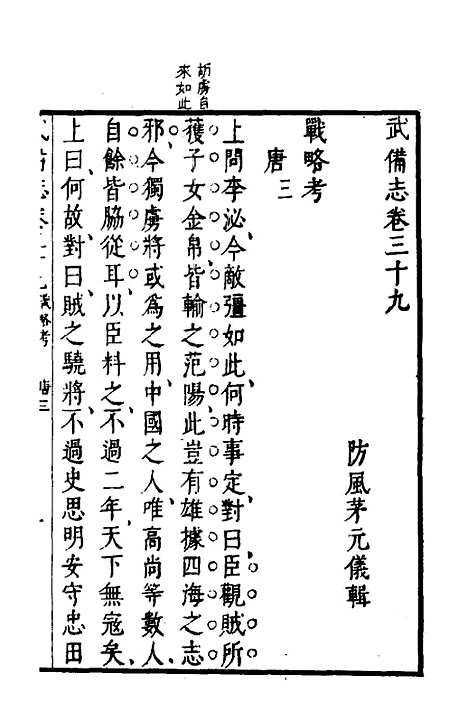 武備志卷三十九
防風茅元儀輯
戰略考
唐三
上問李泌今敵彊如此何時事定對曰臣觀賊所
獲子女金帛皆輸之范陽此豈有雄據四海之志
邪今獨虜將或為之用中國之人唯高尚等數人
自餘皆脇從耳以臣料之不過二年天下無寇矣
上曰何故對曰賊之驍將不過史思明安守忠田
胡虜自
來如此
戰略考 唐三